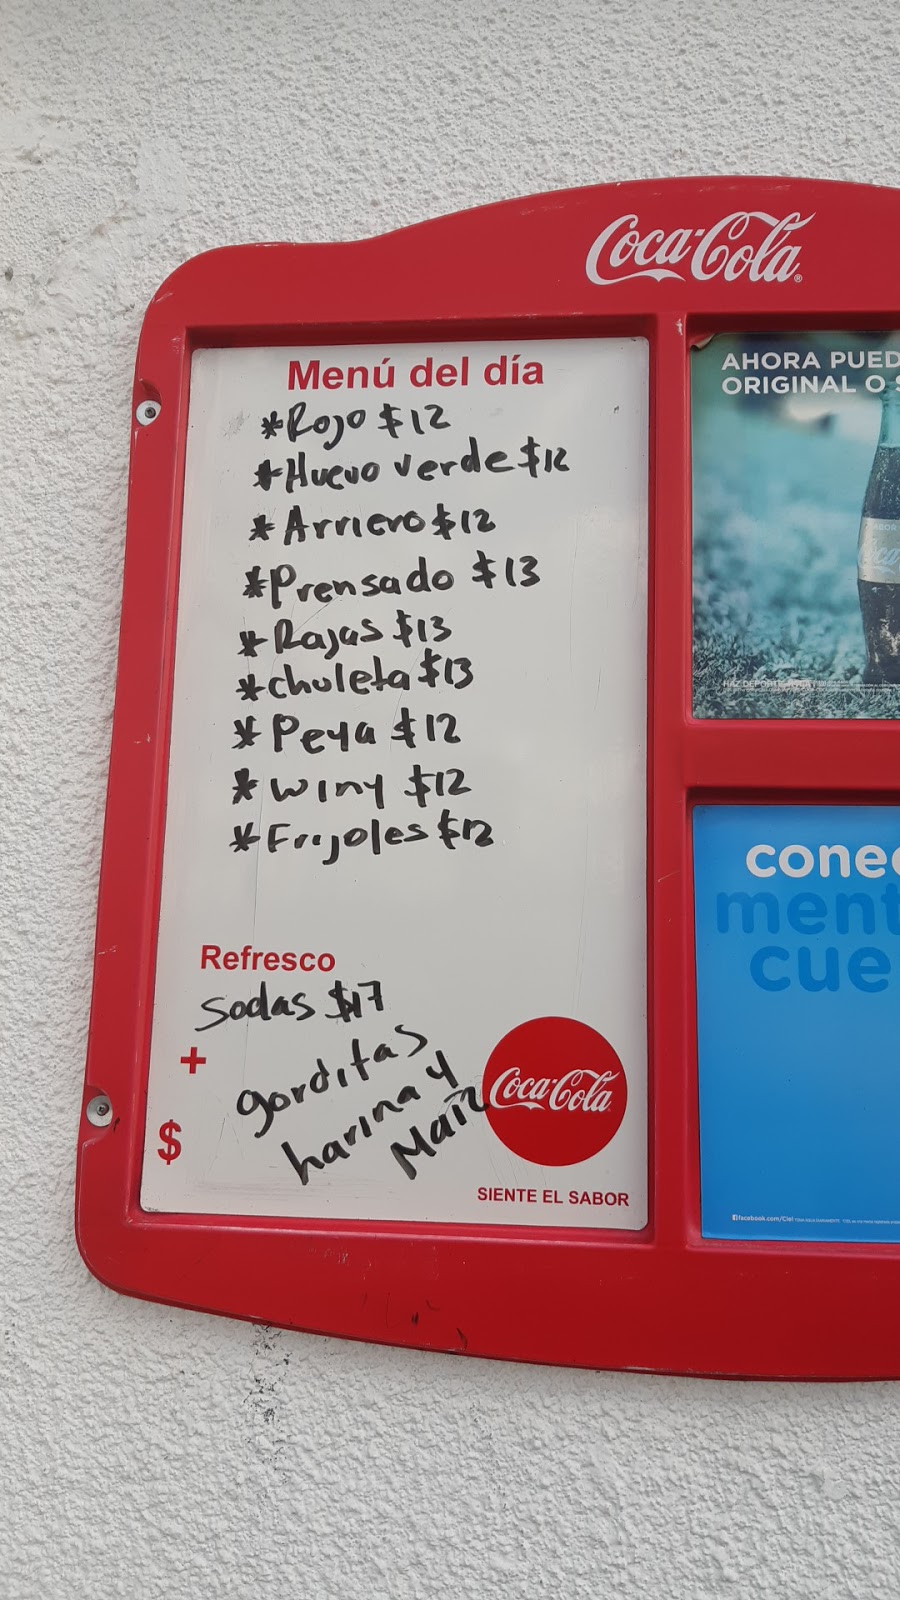 Coca-Cola
Menú del día
*Rojo $12
*Huevo verde $12
*Arriero $12
*Prensado $13
*Rajas $13
*chuleta $13
*Peya $12
*winy $12
*Frijoles $12
Refresco
sodas $17
+
gorditas
harina y
Maíz
$
Coca-Cola
SIENTE EL SABOR
AHORA PUED
ORIGINAL O S
conec
ment
cue
facebook.com/Ciel